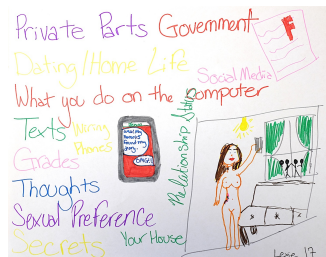 Private Parts
Government
F
Dating/Home Life
Social Media
What you do on the computer
Texts
Wiring
Phones
Relationship Status
Grades
OMG!!
Thoughts
Sexual Preference
Secrets
Your House
Lexe 17